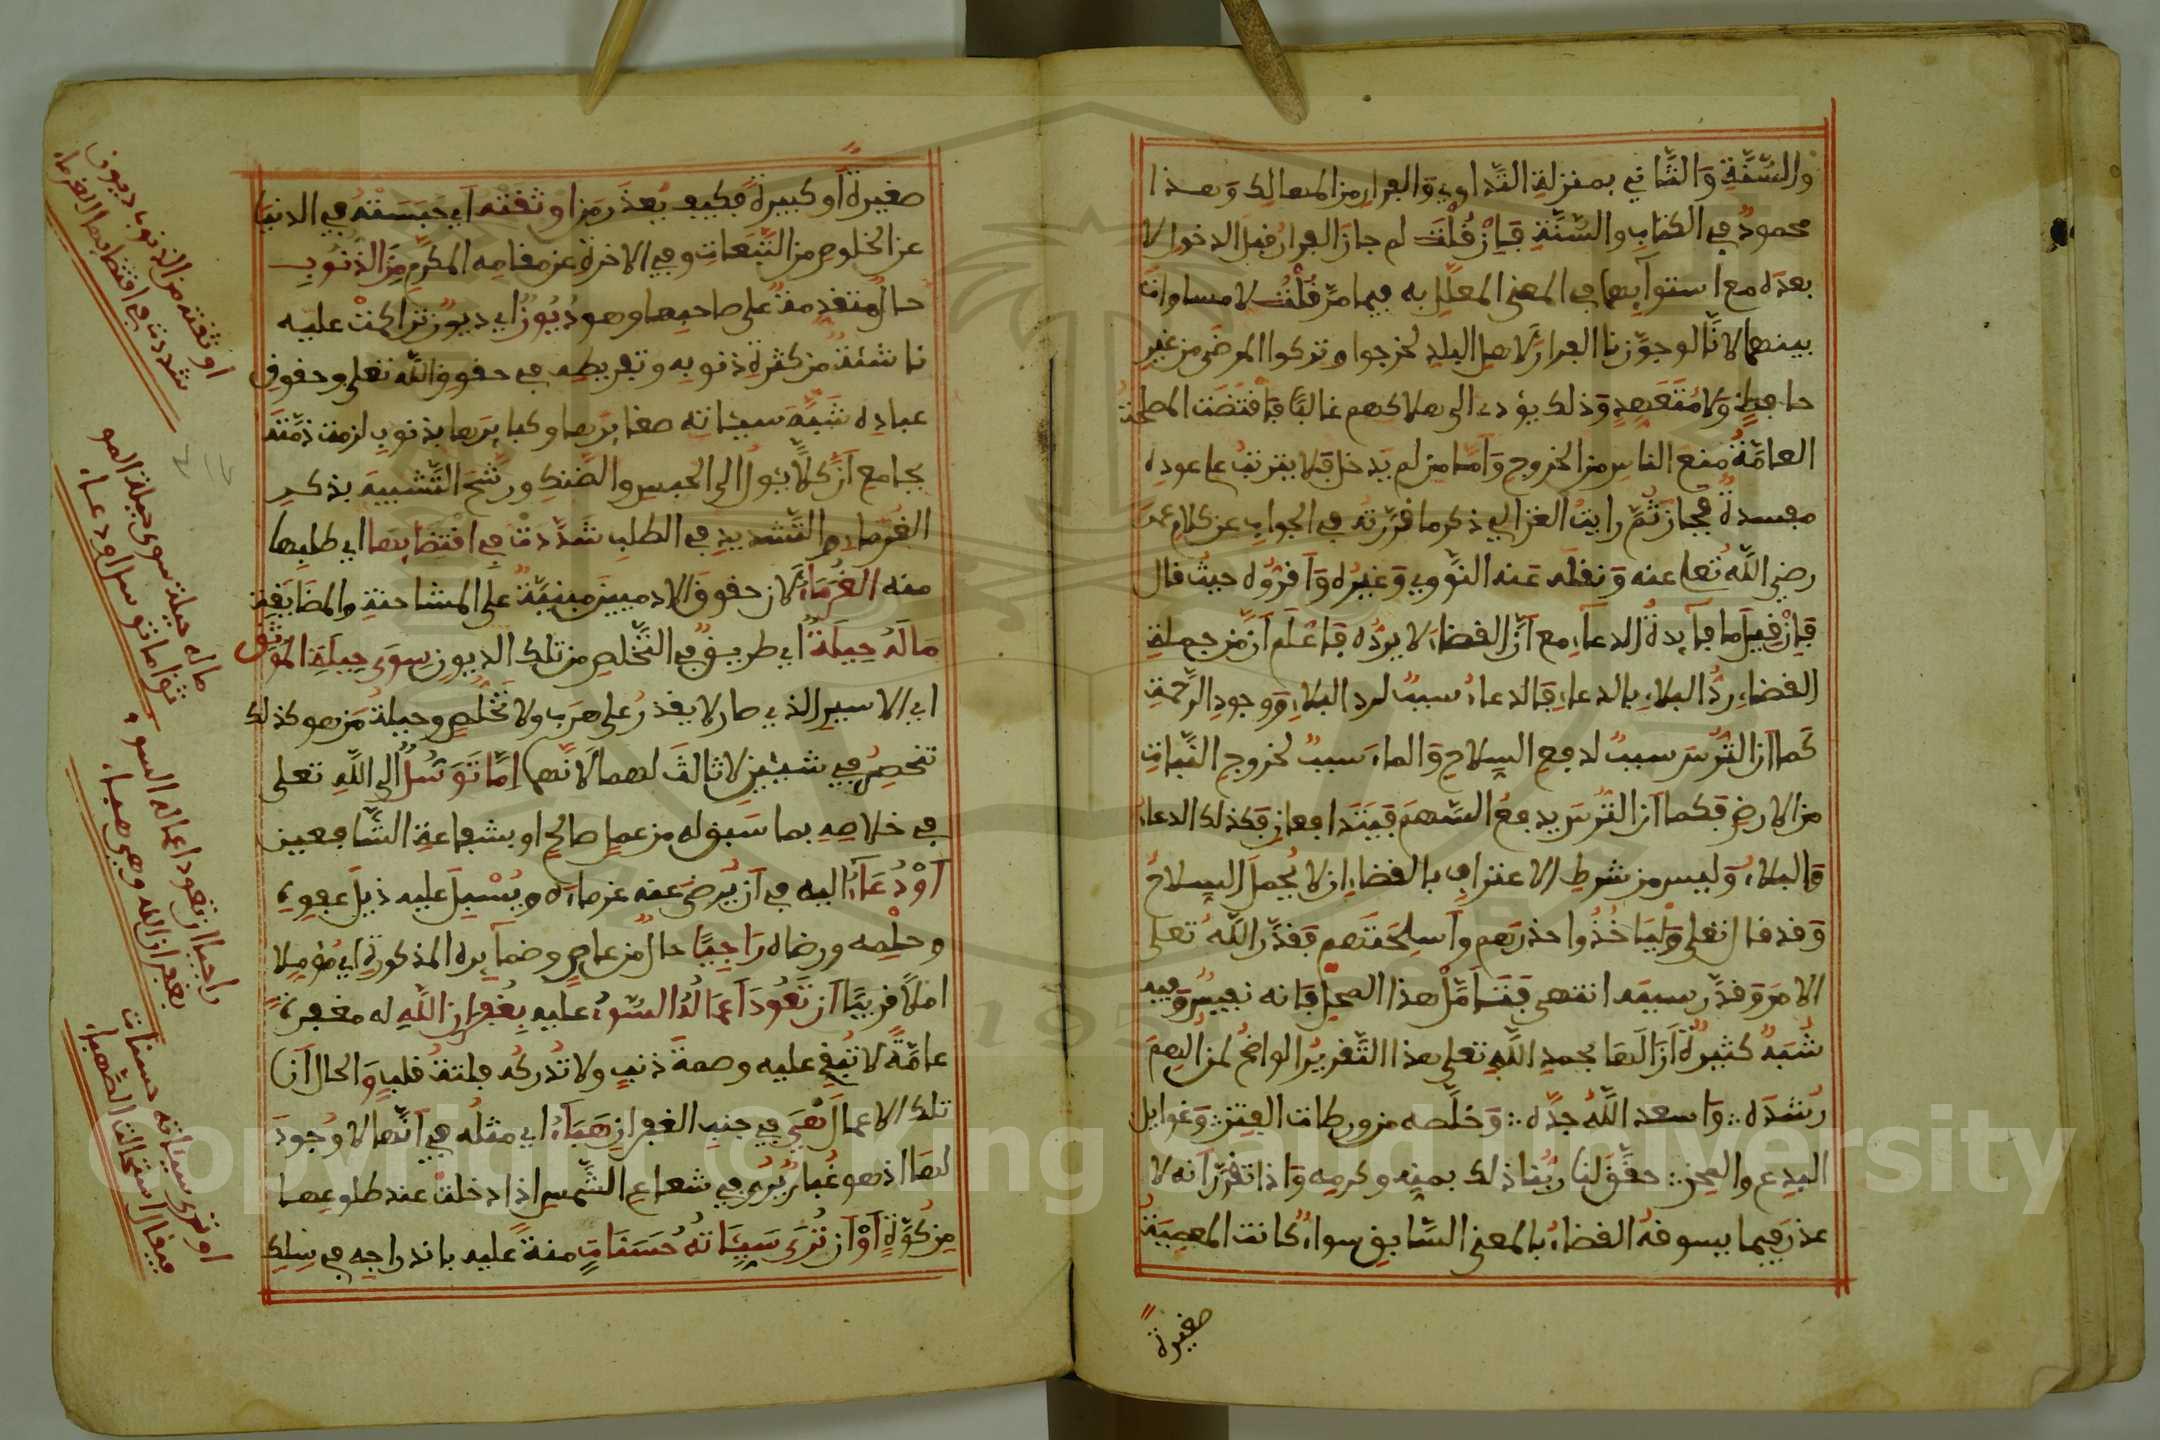 والسُّنَّةِ وَالثَّانِي بمنزلةِ التَّداوِي وَالفِرارِ من المهالك وَهذا
محمودٌ في الكتابِ والسُّنَّةِ فَإنْ قُلْتَ لم جازَ الفرارُ قبل الدخولِ لا
بعدَه مع استوآئهما في المعنى المعلَّلِ به فيما مرّ قُلْتُ لا مساواةَ
بينهما لانَّا لو جوَّزنا الفرارَ لاهلِ البلدِ لخرجوا وتركوا المرضى من غير
حافظٍ وَلا مُتَعَهِّدٍ وَذلك يؤدى الى هلاكهم غالبًا فَاقْتَضَتِ المصلحةُ
العامَّةُ منعَ الناسِ من الخروجِ وَأمّا من لم يَدخل فلا يترتبُ على عوده
مفسدةٌ فجازَ ثُمَّ رايتُ الغزالي ذكر ما قرّرتُه في الجوابِ عن كلامِ عمرَ
رضي اللّه تعلى عنه وَنقلَه عَنه النَّووي وَغيرُه وَأقرُّوه حيثُ قال
فَإنْ قِيلَ ما فآئدةُ الدعآءِ مع أنَّ القضاءَ لا يردُّه فَاعْلَم أنَّ من جملةِ
القضاءِ ردُّ البلاءِ بالدعاءِ فَالدعاءُ سببٌ لردِ البلاءِ وَوجودِ الرَّحمةِ
كَما أنَّ التُّرْسَ سببٌ لدفعِ السلاحِ وَالماءَ سببٌ لخروجِ النَّباتِ
من الارضِ فَكما أنَّ التُّرْسَ يدفعُ السَّهمَ فَيَتَدافعانِ فَكذلك الدعاءُ
وَالبلاءُ وَليس من شرطِ الاعترافِ بالقضاءِ ان لا يُحملَ السلاحُ
وَقد قال تعلى وَلْيَاخُذُوا حذرَهم وأسلحتَهم فقدَّر اللّهُ تعلى
الامرَ وَقدّر سببَه انتهى فَتَأمَّلْ هذا المحلَّ فَإنه نفيسٌ وَفيه
شُبَهٌ كثيرةٌ أزالَها بحمدِ اللّهِ تعلى هذا التَّقريرُ الواضحُ لمن أُلهِمَ
رُشدَه وَاسعد اللّهُ جدَّه وَخلَّصه من ورطات الفِتَنِ وَغوايل
البِدعِ والمِحَنِ حقَّقَ لنا ربُّنا ذلك بمنِّه وكرمِه وَاذا تقرَّرَ أنه لا
عذرَ فيما يسوقهُ القضاءُ بالمعنى السَّابقِ سواءٌ كانت المعصيةُ
صغيرةً
صغيرةً أو كبيرةً فكيف يُعذَر من اوثقتْه أي حبَسَتْه في الدنيا
عن الخلوصِ من التَّبِعاتِ وفي الاخرةِ عن مقامِه المكرّمِ مِنَ الذُّنُوبِ
حالٌ متقدِمةٌ على صاحبِها وهو دُيُونٌ اي ديونٌ تراكمتْ عليه
ناشئةٌ من كثرةِ ذنوبِه وتفريطِه في حقوقِ اللّه تعلى وحقوقِ
عبادِه شَبَّهَ سيئاتِه صغائرَها وكبائرَها بذنوبٍ لزمت ذمّتَه
بجامعِ أنّ كلاًّ يئولُ الى الحبسِ والضنكِ ورشَّح التَّشبيهَ بذكرِ
الغرماءِ والتَّشديدِ في الطلبِ شَدَّدَتْ في اقْتِضَائِهَا اي طلبِها
منه الغُرَمَآءُ لان حقوقَ الادميينَ مبنيّةٌ على المشاححةِ والمضايقةِ
مَا لَهُ حِيلَةٌ اي طريقٌ في التَّخلصِ من تلك الديونِ سِوَى حِيلَةِ المُوثَقِ
اي الاسيرِ الذي صار لا يقدرُ على هرَبٍ ولا تخلُّصٍ وحيلةُ مَن هو كذلك
تنحصِرُ في شيئينِ لا ثالثَ لهما لانَّها إمَّا تَوَسُّلٌ إلى اللّهِ تعلى
في خلاصِهِ بما سَبَق له من عملٍ صالحٍ او بشفاعةِ الشَّافعين
أوْ دُعَآءٌ اليه في أن يُرضِيَ عنه غرماءَه ويُسْبِلَ عليه ذيلَ عفوِه
وحلْمِه ورضاه رَاجِيًا حالٌ من عاصٍ وضمآئرِه المذكورةِ اي مؤملا
املاً قريبًا أن تَعُودَ أعمَالُهُ السُّوءُ عليه بِغُفرانِ اللّهِ له مغفرةً
عامَّةً لا تُبقِي عليه وصمةَ ذنبٍ ولا تُدرِكُه فلتةُ قلبٍ وَالحالُ أنّ
تلك الاعمالَ هْيَ في جنبِ الغفرانِ هَبَآءٌ اي مثلُه في أنَّها لا وُجودَ
لها اذ هو غُبارٌ يُرى في شعاعِ الشَّمسِ اذا دخلتْ عند طلوعِها
مِن كُوَّةٍ أوْ أن تُرَى سَيِّئَاتُهُ حُسَنَاتٍ منةً عليه باندراجِه في سِلكِ
اوثقته من الذنوب ديون
شددت في اقتضائها الغرماء
ما له حيلة سوى حيلة المو
ثق اما توسل او دعاء
راجيا ان تعود اعماله السوء
بغفران الله وهي هباء
او ترى سيئاته حسنات
فيقال استحالت الصهباء